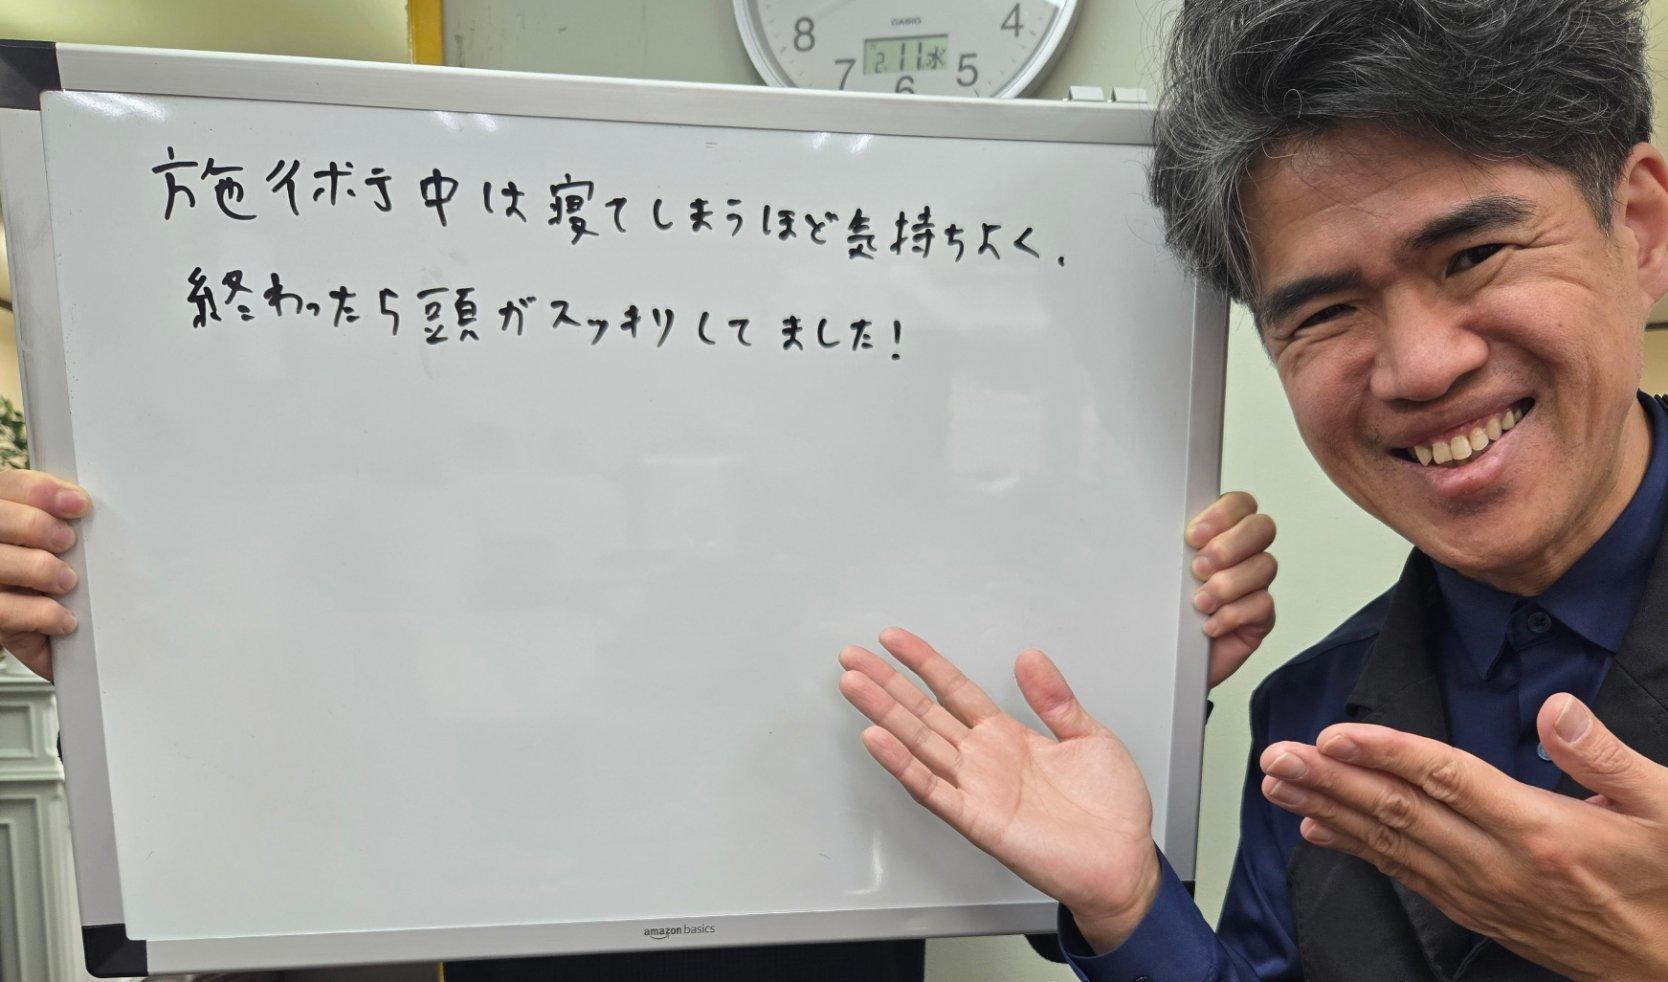 8 CASIO 4
7 2.11水 5
6
施術中は寝てしまうほど気持ちよく.
終わったら頭がスッキリしてました!
amazon basics